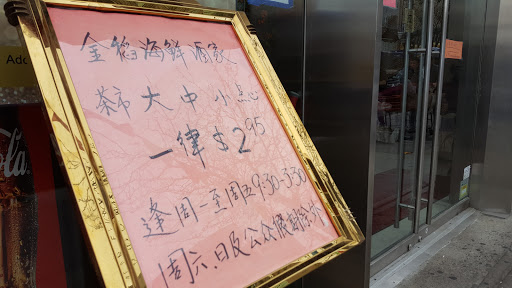 金稻海鮮酒家
茶市大中小点心
一律$2.95
逢周一至周五9:30-3:30
周六.日及公众假期除外
Add